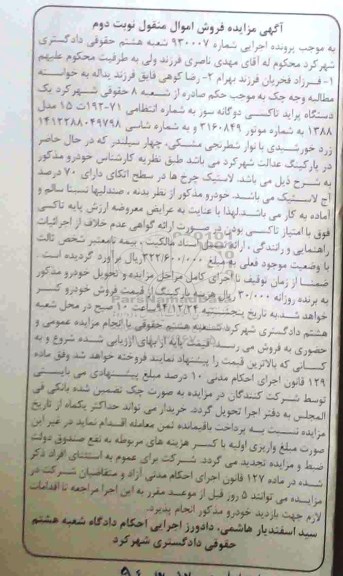 آگهی مزایده فروش اموال منقول نوبت دوم
به موجب پرونده اجرایی شماره ۹۳۰۰۰۷ شعبه هشتم حقوقی دادگستری
شهرکرد محکوم له آقای مهدی ناصری فرزند ولی به طرفیت محکوم علیهم
۱- فرزاد فخریان فرزند بهرام ۲- رضا کوهی فایق فرزند یداله به خواسته
مطالبه وجه چک به موجب حکم صادره از شعبه ۸ حقوقی شهرکرد یک
دستگاه پراید تاکسی دوگانه سوز به شماره انتظامی ۷۱-۱۹۳ت ۱۵ مدل
۱۳۸۸ به شماره موتور ۳۱۶۰۸۴۹ و به شماره شاسی ۱۴۱۲۲۸۸۰۴۹۷۹۸
زرد خورشیدی با نوار شطرنجی مشکی، چهار سیلندر که در حال حاضر
در پارکینگ عدالت شهرکرد می باشد طبق نظریه کارشناس خودرو مذکور
به شرح ذیل می باشد. لاستیک چرخ ها در سطح اتکای دارای ۷۰ درصد
آج لاستیک می باشد. خودرو مذکور از نظر بدنه، صندلیها نسبتا سالم و
آماده به کار می باشد. لهذا با عنایت به عرایض معروضه ارزش پایه تاکسی
فوق با امتیاز تاکسی بودن در صورت ارائه گواهی عدم خلاف از اجرائیات
راهنمایی و رانندگی، ارائه اصل اسناد مالکیت، بیمه نامعتبر شخص ثالث
با وضعیت موجود فعلی به مبلغ ۲۲۲/۶۰۰/۰۰۰ ریال برآورد گردیده است.
ضمنا از زمان توقیف تا اجرای کامل مراحل مزایده و تحویل خودرو مذکور
به برنده روزانه ۳۰/۰۰۰ ریال هزینه پارکینگ از قیمت فروش خودرو کسر
خواهد شد به تاریخ پنجشنبه ۹۴/۱۲/۲۴ ساعت ۱۰ صبح در محل شعبه
هشتم دادگستری شهرکرد شعبه هشتم حقوقی با انجام مزایده عمومی و
حضوری به فروش می رسد. قیمت پایه از بهای ارزیابی شده شروع و به
کسانی که بالاترین قیمت را پیشنهاد نمایند فروخته خواهد شد. وفق ماده
۱۲۹ قانون اجرای احکام مدنی ۱۰ درصد مبلغ پیشنهادی می بایستی
توسط شرکت کنندگان در مزایده به صورت چک تضمین شده بانکی فی
المجلس به دفتر اجرا تحویل گردد. خریدار می تواند حداکثر یکماه از تاریخ
مزایده نسبت به پرداخت باقیمانده ثمن معامله اقدام نماید در غیر این
صورت مبلغ واریزی اولیه با کسر هزینه های مربوطه به نفع صندوق دولت
ضبط و مزایده تجدید می گردد. شرکت برای عموم به استثنای افراد ذکر
شده در ماده ۱۲۷ قانون اجرای احکام مدنی آزاد و متقاضیان شرکت در
مزایده می توانند ۵ روز قبل از موعد مقرر به این اجرا مراجعه تا اقدامات
لازم جهت بازدید خودرو مذکور انجام پذیرد.
سید اسفندیار هاشمی، دادورز اجرایی احکام دادگاه شعبه هشتم
حقوقی دادگستری شهرکرد